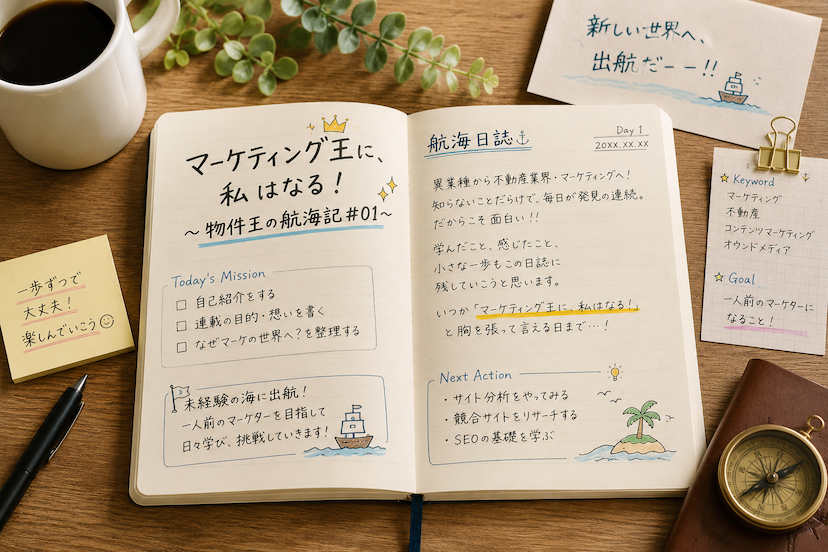 マーケティング王に、
私はなる！
〜物件王の航海記#01〜
Today's Mission
自己紹介をする
連載の目的・想いを書く
なぜマーケの世界へ？を整理する
未経験の海に出航！
一人前のマーケターを目指して
日々学び、挑戦していきます！
航海日誌
Day 1
20XX.XX.XX
異業種から不動産業界・マーケティングへ！
知らないことだらけで、毎日が発見の連続。
だからこそ面白い！！
学んだこと、感じたこと、
小さな一歩もこの日誌に
残していこうと思います。
いつか「マーケティング王に、私はなる！」
と胸を張って言える日まで…！
Next Action
・サイト分析をやってみる
・競合サイトをリサーチする
・SEOの基礎を学ぶ
一歩ずつで
大丈夫！
楽しんでいこう
新しい世界へ、
出航だーー!!
Keyword
マーケティング
不動産
コンテンツマーケティング
オウンドメディア
Goal
一人前のマーケターに
なること！